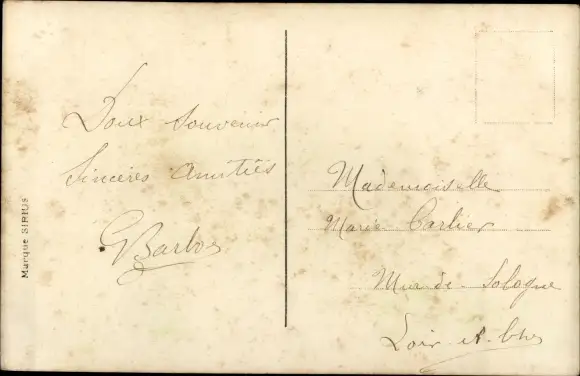 Doux souvenir
Sincères Amitiés
G Barbos
Mademoiselle
Marie Carlier
Mur de - Sologne
Loir et Cher
Marque SIRIUS